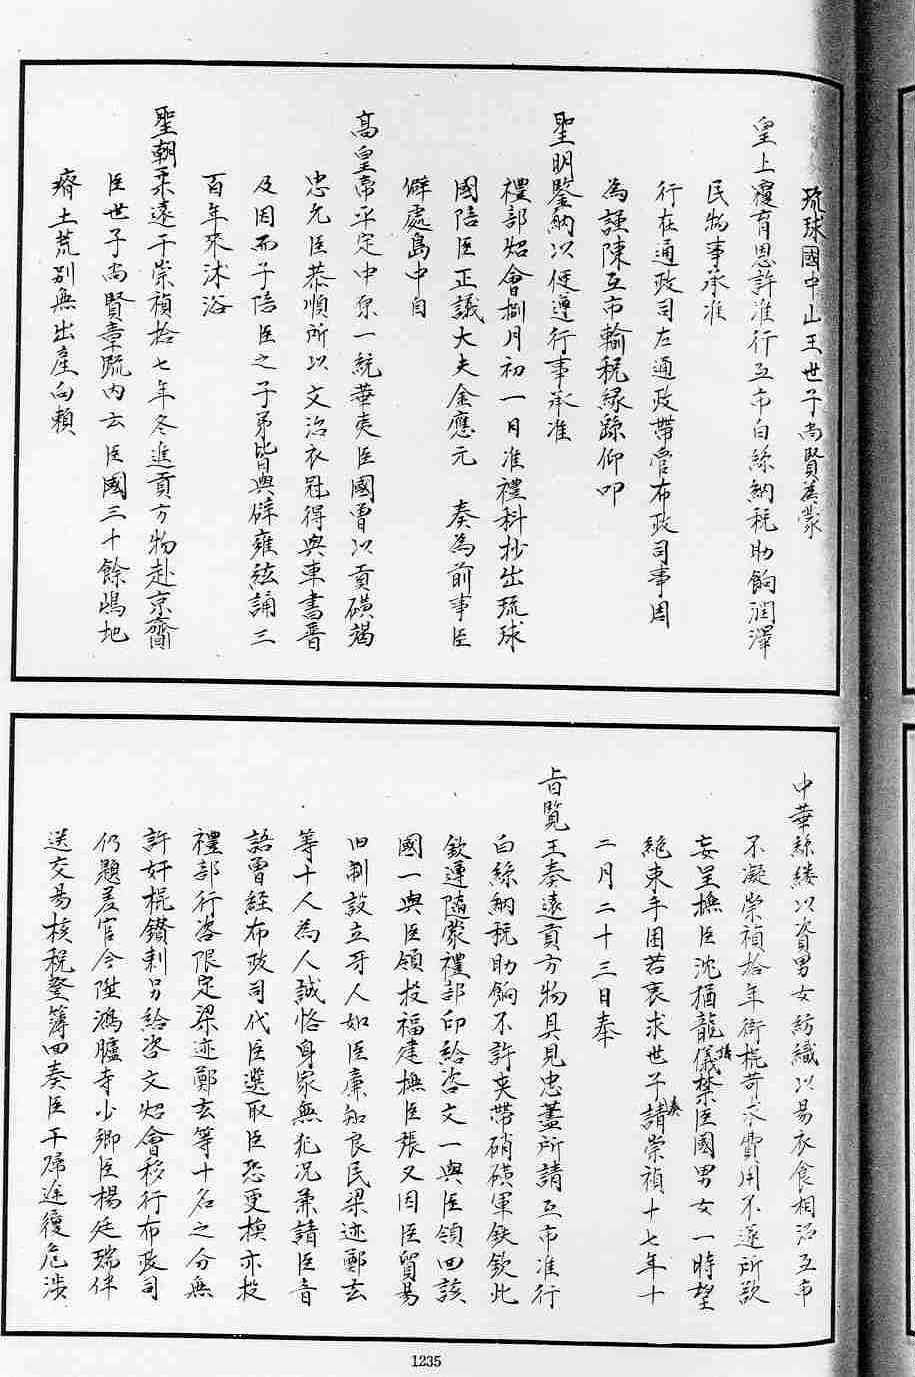 琉球國中山王世子尚賢為蒙
皇上覆育恩許准行互市白絲納稅助餉潤澤
民物事承准
行在通政司左通政帶管布政司事周
為謹陳互市輸稅緣繇仰叩
聖明鑒納以便遵行事承准
禮部炤會捌月初一日准禮科抄出琉球
國陪臣正議大夫金應元 奏為前事臣
僻處島中自
高皇帝平定中原一統華夷臣國曾以貢磺竭
忠允臣恭順所以文治衣冠得與車書晋
及因而子陪臣之子弟皆與辟雍絃誦三
百年來沐浴
聖朝柔遠于崇禎拾七年冬進貢方物赴京齎
臣世子尚賢章疏內云臣國三十餘島地
瘠土荒別無出產向賴
中華絲縷以資男女紡織以易衣食相沿互市
不凝崇禎拾年衙棍苛索費用不遂所欲
妄呈撫臣沈猶龍儀搆禁臣國男女一時望
絕束手困苦哀求世子請奏崇禎十七年十
二月二十三日奉
旨覽王奏遠貢方物具見忠藎所請互市准行
白絲納稅助餉不許夾帶硝磺軍鉄欽此
欽遵隨蒙禮部印給咨文一與臣領回該
國一與臣領投福建撫臣張又因臣貿易
旧制設立牙人如臣廉知良民梁迹鄭玄
等十人為人誠恪身家無犯況兼請臣音
語曾經布政司代臣選取臣恐更換亦投
禮部行咨限定梁迹鄭玄等十名之分無
許奸棍鑽剌另給咨文炤會移行布政司
仍題差官今陞鴻臚寺少卿臣楊廷瑞伴
送交易核稅登簿回奏臣于歸途復危涉
1235